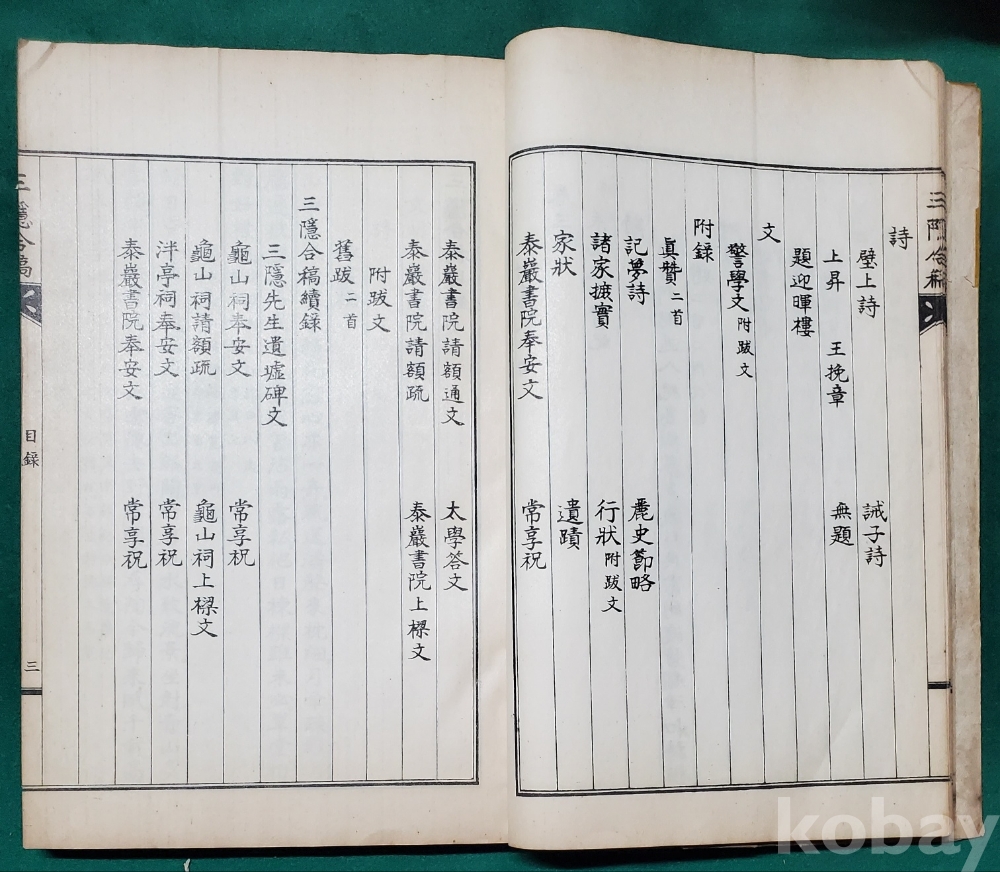 詩
壁上詩 誡子詩
上昇 王挽章 無題
題迎暉樓
文
警學文 附跋文
附錄
眞贊 二首
記夢詩 麗史節略
諸家摭實 行狀 附跋文
家狀 遺蹟
泰巖書院奉安文 常享祝
泰巖書院請額通文 太學答文
泰巖書院請額疏 泰巖書院上樑文
附跋文
舊跋 二首
三隱合稿續錄
三隱先生遺墟碑文
龜山祠奉安文 常享祝
龜山祠請額疏 龜山祠上樑文
泮亭祠奉安文 常享祝
泰巖書院奉安文 常享祝
三隱合稿
目錄
三
kobay